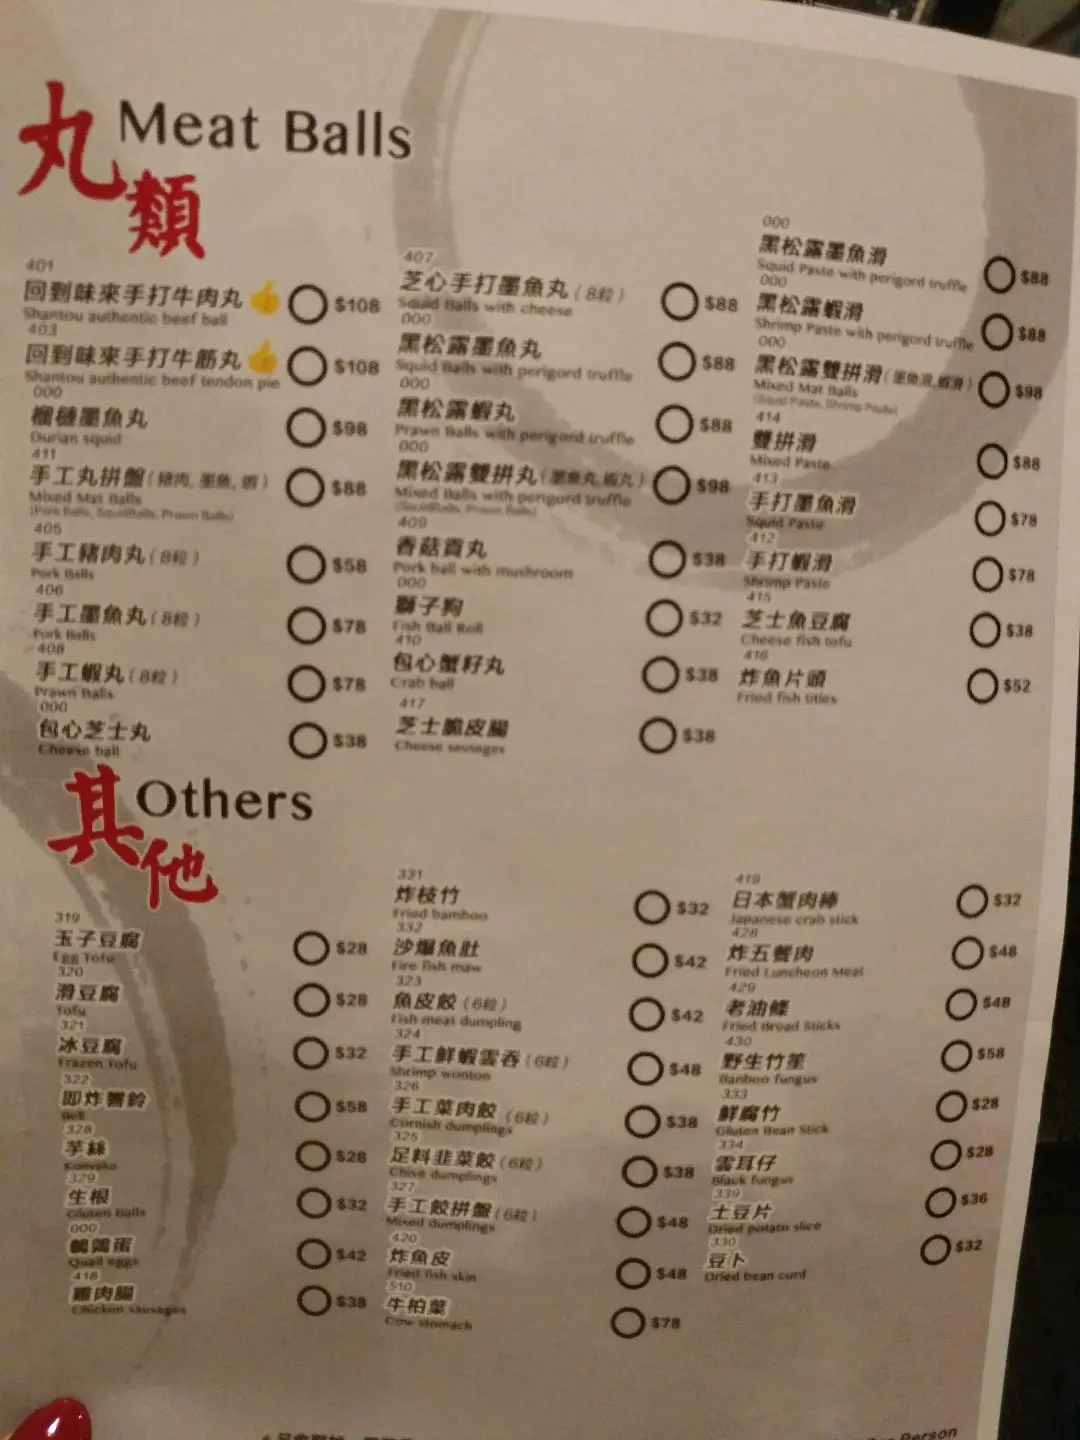 丸類 Meat Balls
401
回到味來手打牛肉丸 $108
Shantou authentic beef ball
403
回到味來手打牛筋丸 $108
Shantou authentic beef tendon pie
000
榴槤墨魚丸 $98
Durian squid
411
手工丸拼盤(豬肉, 墨魚, 蝦) $88
Mixed Mat Balls
(Pork Balls, SquidBalls, Prawn Balls)
405
手工豬肉丸(8粒) $58
Pork Balls
406
手工墨魚丸(8粒) $78
Pork Balls
408
手工蝦丸(8粒) $78
Prawn Balls
000
包心芝士丸 $38
Cheese ball
407
芝心手打墨魚丸(8粒) $88
Squid Balls with cheese
000
黑松露墨魚丸 $88
Squid Balls with perigord truffle
000
黑松露蝦丸 $88
Prawn Balls with perigord truffle
000
黑松露雙拼丸(墨魚丸,蝦丸) $98
Mixed Balls with perigord truffle
(SquidBalls, Prawn Balls)
409
香菇貢丸 $38
Pork ball with mushroom
000
獅子狗 $32
Fish Ball Roll
410
包心蟹籽丸 $38
Crab ball
417
芝士脆皮腸 $38
Cheese sausages
000
黑松露墨魚滑 $88
Squid Paste with perigord truffle
000
黑松露蝦滑 $88
Shrimp Paste with perigord truffle
000
黑松露雙拼滑(墨魚滑,蝦滑) $98
Mixed Mat Balls
(Squid Paste, Shrimp Paste)
414
雙拼滑 $88
Mixed Paste
413
手打墨魚滑 $78
Squid Paste
412
手打蝦滑 $78
Shrimp Paste
415
芝士魚豆腐 $38
Cheese fish tofu
416
炸魚片頭 $52
Fried fish titles
其他 Others
319
玉子豆腐 $28
Egg Tofu
320
滑豆腐 $28
Tofu
321
冰豆腐 $32
Frazen Tofu
322
即炸響鈴 $58
Bell
328
芋絲 $28
Konyaku
329
生根 $32
Gluten Balls
000
鵪鶉蛋 $42
Quail eggs
418
雞肉腸 $38
Chicken sausages
331
炸枝竹 $32
Fried bamboo
332
沙爆魚肚 $42
Fire fish maw
323
魚皮餃(6粒) $42
Fish meat dumpling
324
手工鮮蝦雲吞(6粒) $48
Shrimp wonton
326
手工菜肉餃(6粒) $38
Cornish dumplings
325
足料韭菜餃(6粒) $38
Chive dumplings
327
手工餃拼盤(6粒) $48
Mixed dumplings
420
炸魚皮 $48
Fried fish skin
510
牛柏葉 $78
Cow stomach
419
日本蟹肉棒 $32
Japanese crab stick
428
炸五餐肉 $48
Fried Luncheon Meat
429
老油條 $48
Fried Broad Sticks
430
野生竹笙 $58
Banboo fungus
333
鮮腐竹 $28
Gluten Bean Stick
334
雲耳仔 $28
Black fungus
339
土豆片 $36
Dried potato slice
330
豆卜 $32
Dried bean curd
Person